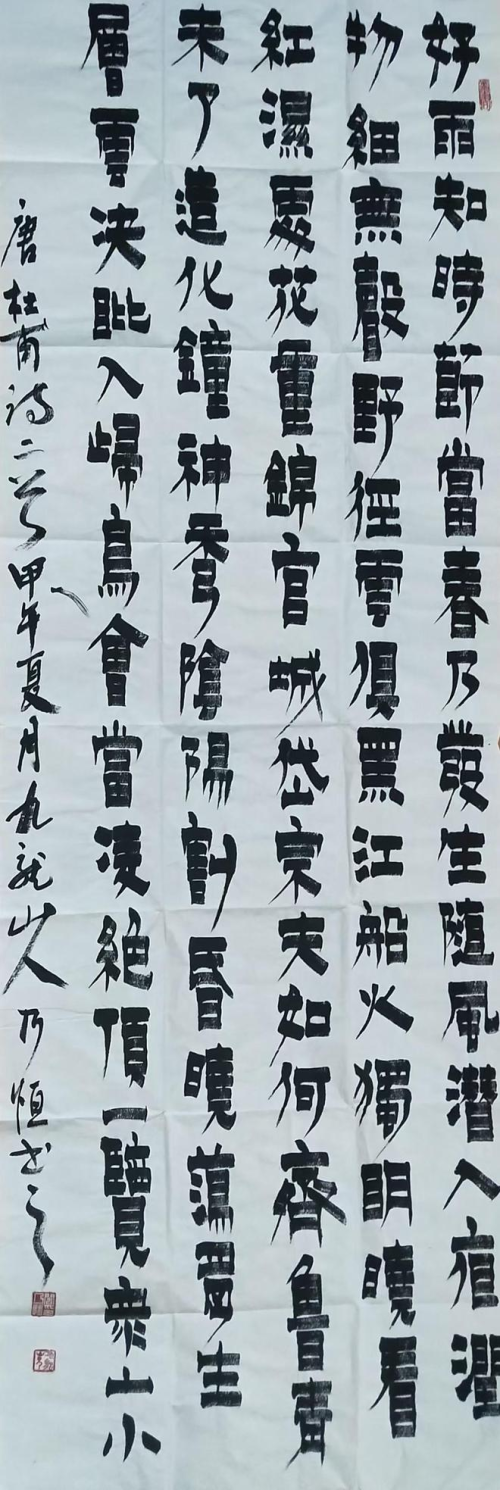 好雨知時節當春乃發生隨風潛入夜潤
物細無聲野徑雲俱黑江船火獨明曉看
紅濕處花重錦官城岱宗夫如何齊魯青
未了造化鐘神秀陰陽割昏曉蕩胷生
層雲決眥入歸鳥會當凌絕頂一覽衆山小
唐杜甫詩二首甲午夏月九龍山人乃恒書之